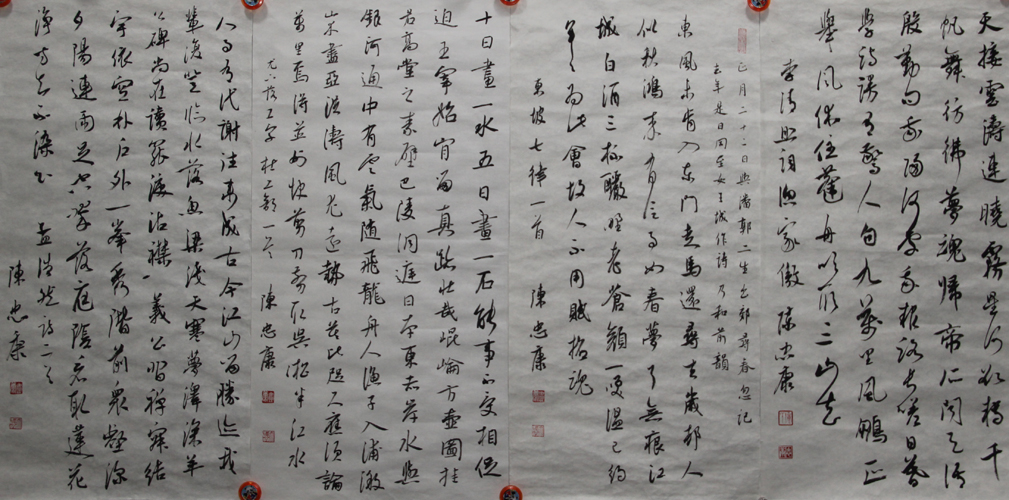 天接雲濤連曉霧星河欲轉千
帆舞彷彿夢魂歸帝所聞天語
殷勤問我歸何處我報路長嗟日暮
學詩謾有驚人句九萬里風鵬正
舉風休住蓬舟吹取三山去
李清照詞漁家傲 陳忠康
正月二十二日與潘郭二生出郊尋春忽記
去年是日同至女王城作詩乃和前韻
東風未肯入東門走馬還尋去歲邨人
似秋鴻來有信事如春夢了無痕江
城白酒三杯釅野老蒼顏一笑溫已約
年年為此會故人不用賦招魂
東坡七律一首 陳忠康
十日畫一水五日畫一石能事不受相促
迫王宰始肯留真跡壯哉崐崘方壺圖挂
君高堂之素壁巴陵洞庭日本東赤岸水與
銀河通中有雲氣隨飛龍舟人漁子入浦漵
山木盡亞洪濤風尤遠勢古莫比咫尺應須論
萬里焉得并州快剪刀剪取吳淞半江水
尤下落工字 杜工部一首 陳忠康
人事有代謝往來成古今江山留勝迹我
輩復登臨水落魚梁淺天寒夢澤深羊
公碑尚在讀罷淚沾襟 義公習禪寂結
宇依空林戶外一峯秀階前衆壑深
夕陽連雨足空翠落庭陰看取蓮花
淨方知不染心 孟浩然詩二首
陳忠康